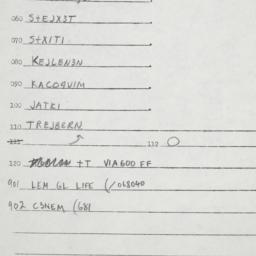 060 S+EJX3T
070 S+XITI
080 KEJLEN3N
090 KACOQVIM
100 JATKI
110 TREJBERN
115 112 O
120 +T VIA600 FF
901 LEM GL LIFE (/068040
902 C3NEM (681